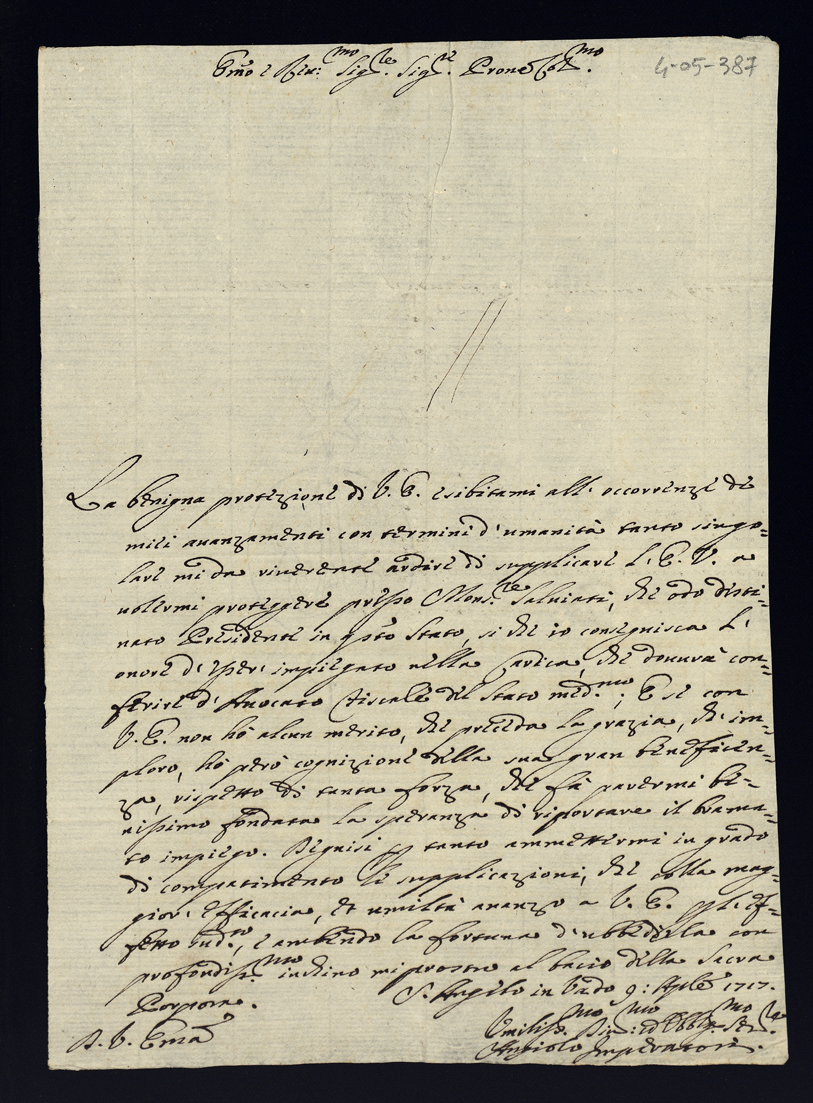 Emo e Rev:mo Sigre. Sigre. Prone Colmo.
4-05-387
La benigna protezione di V. E. esibitami all' occorrenze de
miei avanzamenti con termini d' umanità tanto singo=
lare mi da riverente ardire di supplicare L' E. V. a
volermi proteggere presso Monsre. Salviati, che odo desti=
nato Presidente in qsto Stato, si che io conseguisca L'
onore d' esser' impiegato nella carica, che dovrà con=
ferire d' Avocato Fiscale del Stato med.mo; E se con
V. E. non hò alcun merito, che preceda la grazia, che im=
ploro, hò però cognizione della sua gran beneficen=
za, rispetto di tanta forza, che fà parermi be=
nissimo fondata la speranza di riportare il brama=
to impiego. Degnisi p tanto ammettermi in grado
di compatimento le supplicazioni, che colla mag=
gior' efficacia, et umiltà avanzo a V. E. ppl' ef=
fetto sud.to, e ambendo la fortuna d' ubbidirla con
profondiss.mo inchino mi prostro al bacio della Sacra
Porpora.
S. Angelo in Vado 9: Aple 1717.
D. V. Emza
Umiliss.mo Div:mo ed Obblig.mo Ser.re
Angiolo Imperatori.